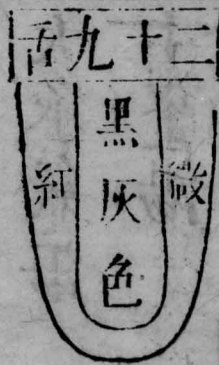 二十九舌
微
黑灰色
紅